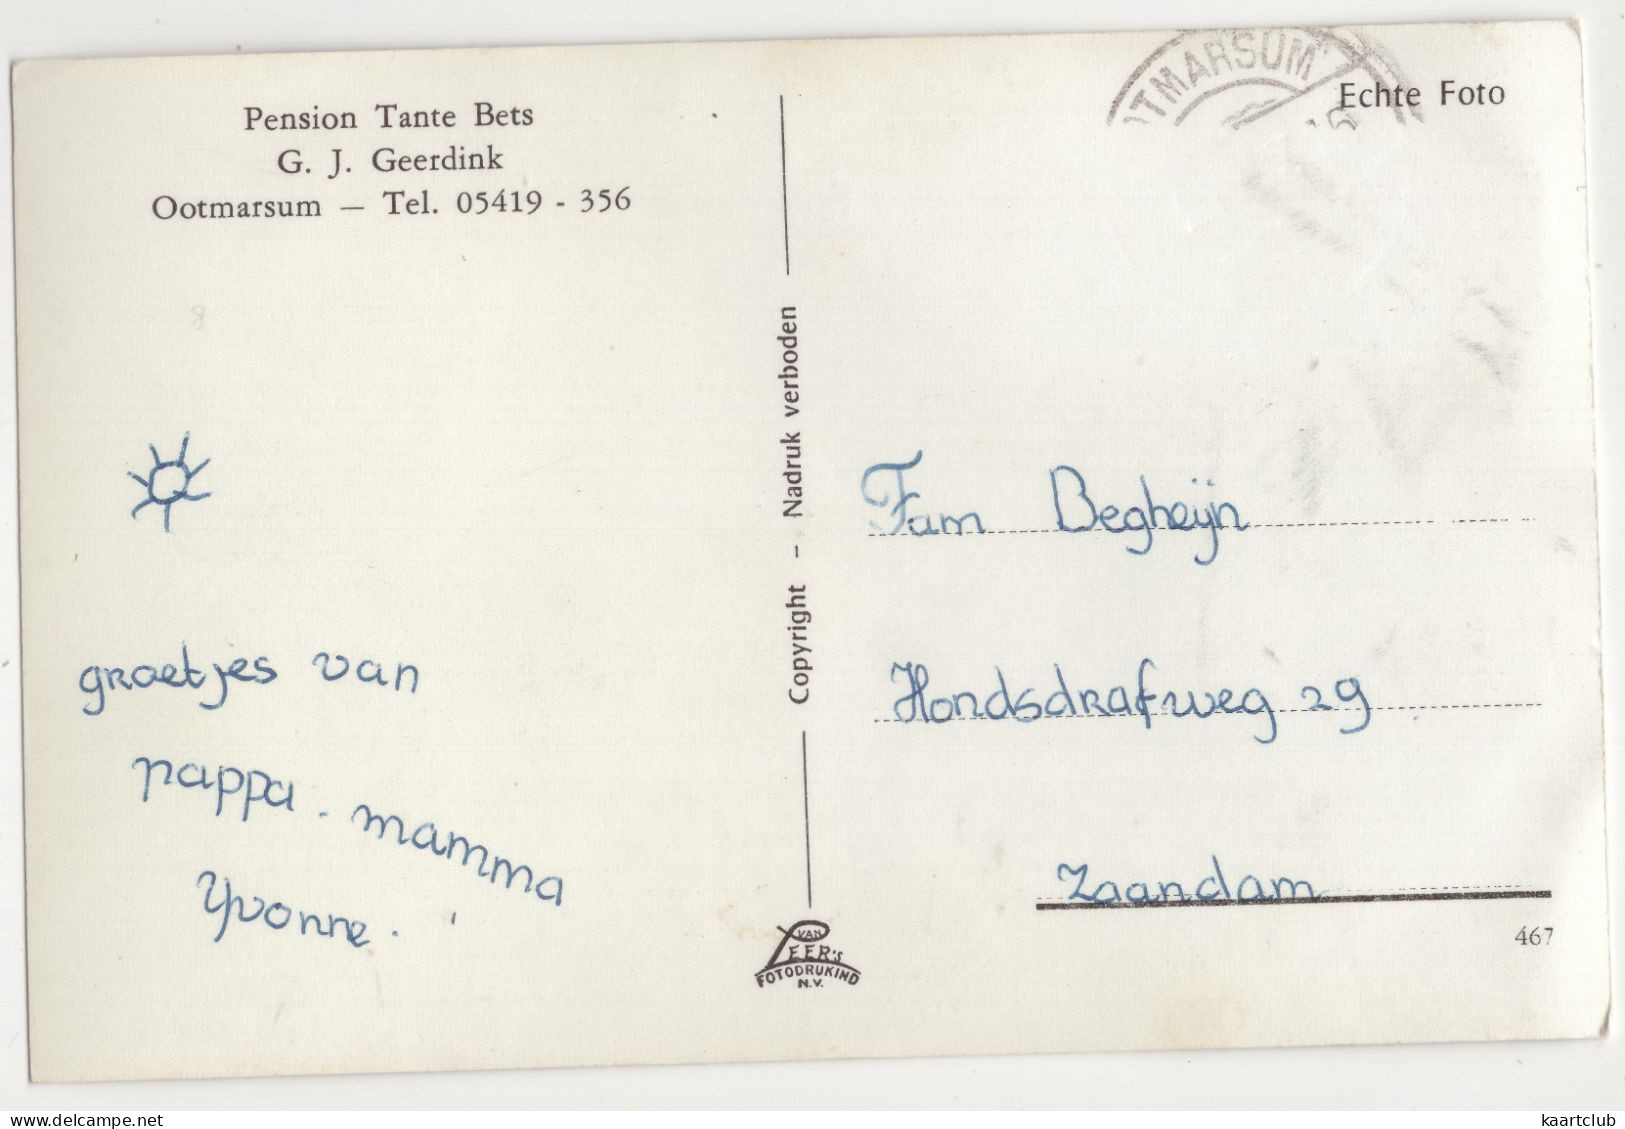 Pension Tante Bets
G. J. Geerdink
Ootmarsum — Tel. 05419 - 356
OOTMARSUM
Echte Foto
8
groetjes van
pappa - mamma
Yvonne.
Copyright - Nadruk verboden
VAN
LEER'S
FOTODRUKIND
N.V.
Fam Begheijn
Hondsdrafweg 29
Zaandam
467
www.delcampe.net
kaartclub